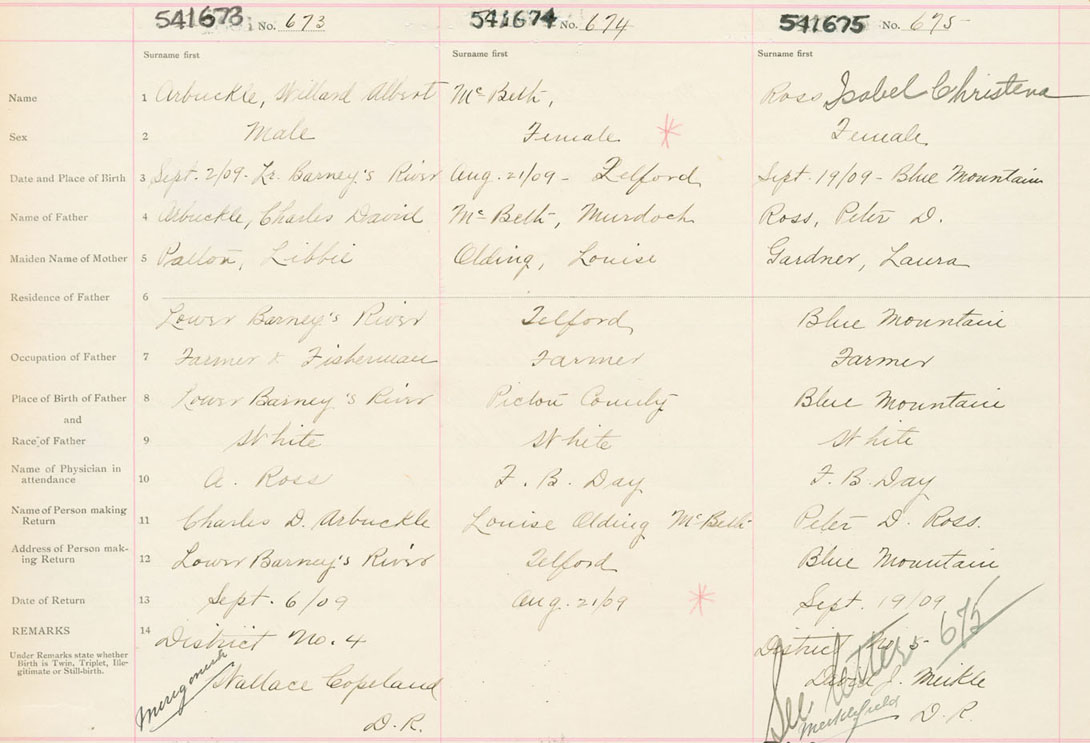 541673 No. 673 541674 No. 674 541675 No. 675
Surname first Surname first Surname first
Name 1 Arbuckle, Willard Albert McBeth, Ross Isabel Christena
Sex 2 Male Female * Female
Date and Place of Birth 3 Sept. 2/09 - Lr. Barney's River Aug. 21/09 - Telford Sept. 19/09 - Blue Mountain
Name of Father 4 Arbuckle, Charles David McBeth, Murdoch Ross, Peter D.
Maiden Name of Mother 5 Patton, Libbie Olding, Louise Gardner, Laura
Residence of Father 6
Lower Barney's River Telford Blue Mountain
Occupation of Father 7 Farmer & Fisherman Farmer Farmer
Place of Birth of Father 8 Lower Barney's River Pictou County Blue Mountain
and
Race of Father 9 White White White
Name of Physician in
attendance 10 A. Ross F. B. Day F. B. Day
Name of Person making
Return 11 Charles D. Arbuckle Louise Olding McBeth Peter D. Ross.
Address of Person mak-
ing Return 12 Lower Barney's River Telford Blue Mountain
Date of Return 13 Sept. 6/09 Aug. 21/09 * Sept. 19/09
REMARKS 14 District No. 4 District No. 5
Under Remarks state whether
Birth is Twin, Triplet, Ille-
gitimate or Still-birth.
See letter 675
Merigomish Wallace Copeland David J. Meikle
D. R. Meiklefield D. R.